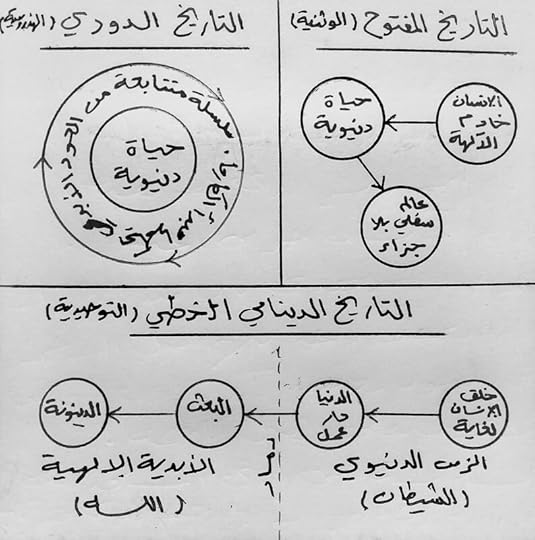 التاريخ المفتوح (الوثنية)
الإنسان
خادم
الآلهة
حياة
دنيوية
عالم
سفلي بلا
جزاء
التاريخ الدوري (الهندوسية)
سلسلة متتابعة من
حياة
دنيوية
التاريخ الدينامي الخطي (التوحيدية)
خلق
الإنسان
لغاية
الدنيا
دار
عمل
البعث
الدينونة
الزمن الدنيوي
(الشيطان)
الأبدية الإلهية
(الله)